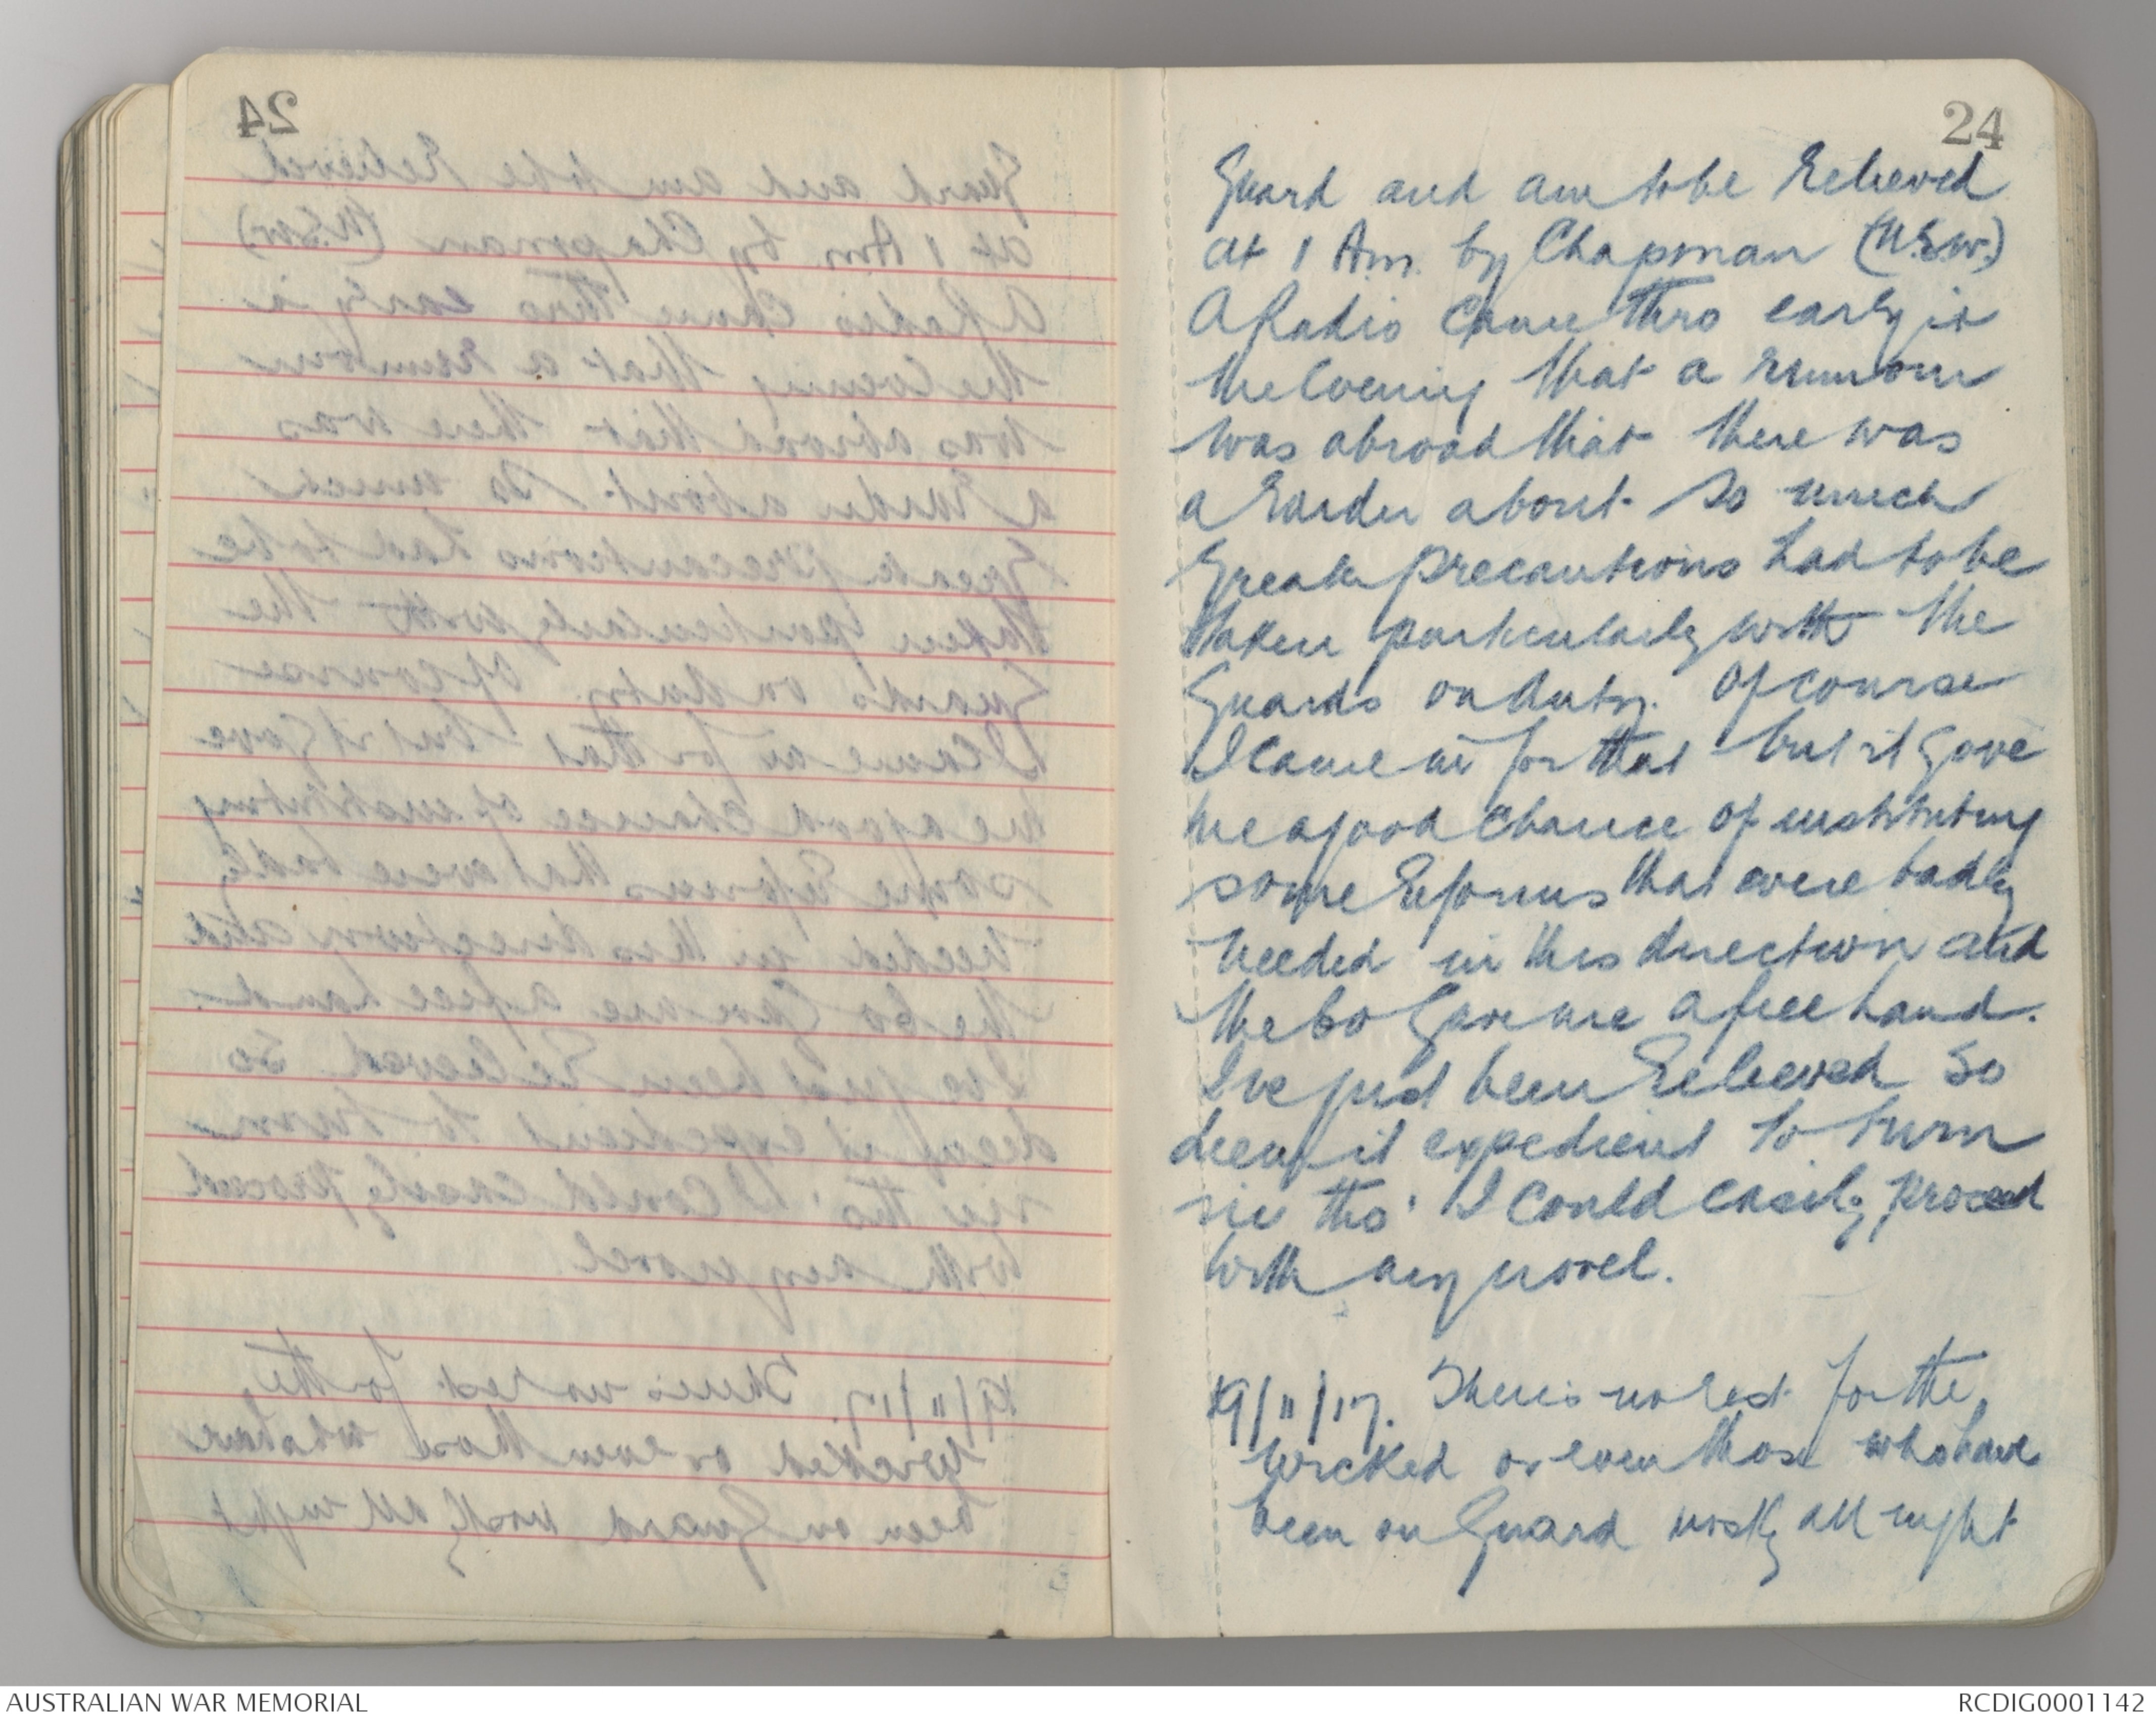 24
Guard and am to be Relieved
at 1 Am. by Chapman (N.S.W.)
A Radio Came thro early in
the Evening that a rumour
was abroad that there was
a Raider about. So much
Greater precautions had to be
taken particularly with the
Guards on duty. Of course
I came in for that but it Gave
me a good chance of instituting
some Reforms that were badly
needed in this direction and
the Co Gave me a free hand.
I've just been Relieved So
deem it expedient to turn
in tho' I Could easily proceed
with any novel.
19/11/17. There is no rest for the
wicked or even those who have
been on Guard mostly all night
AUSTRALIAN WAR MEMORIAL
RCDIG0001142